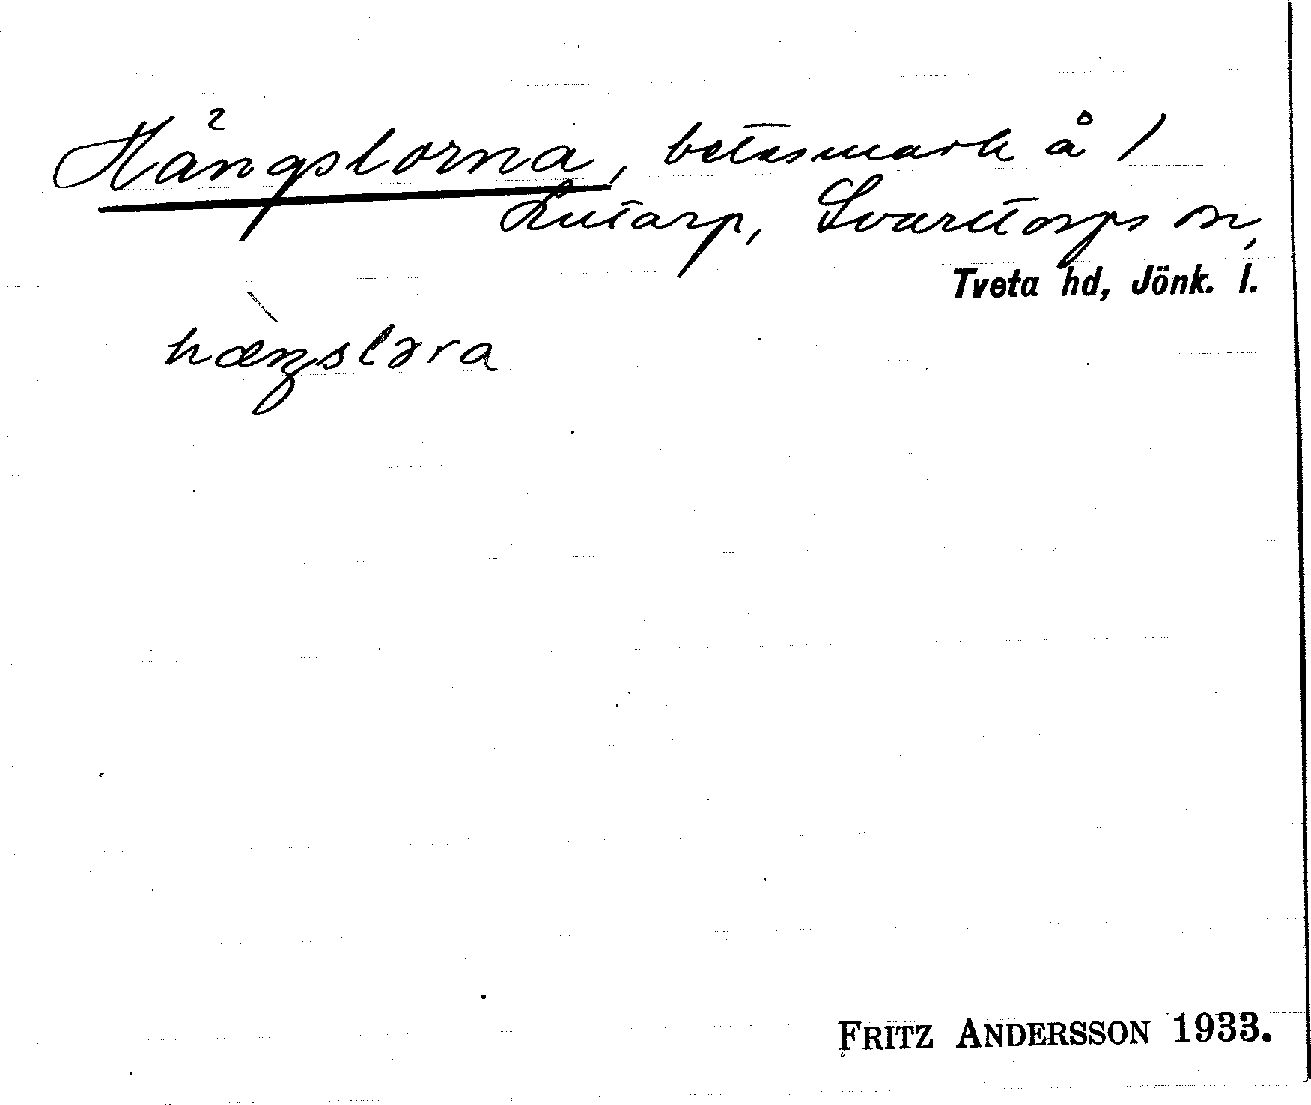 Hängslorna, betesmark å 1
Lutarp, Svarttorps sn,
Tveta hd, Jönk. l.
hæ̀ŋslᴐra
FRITZ ANDERSSON 1933.